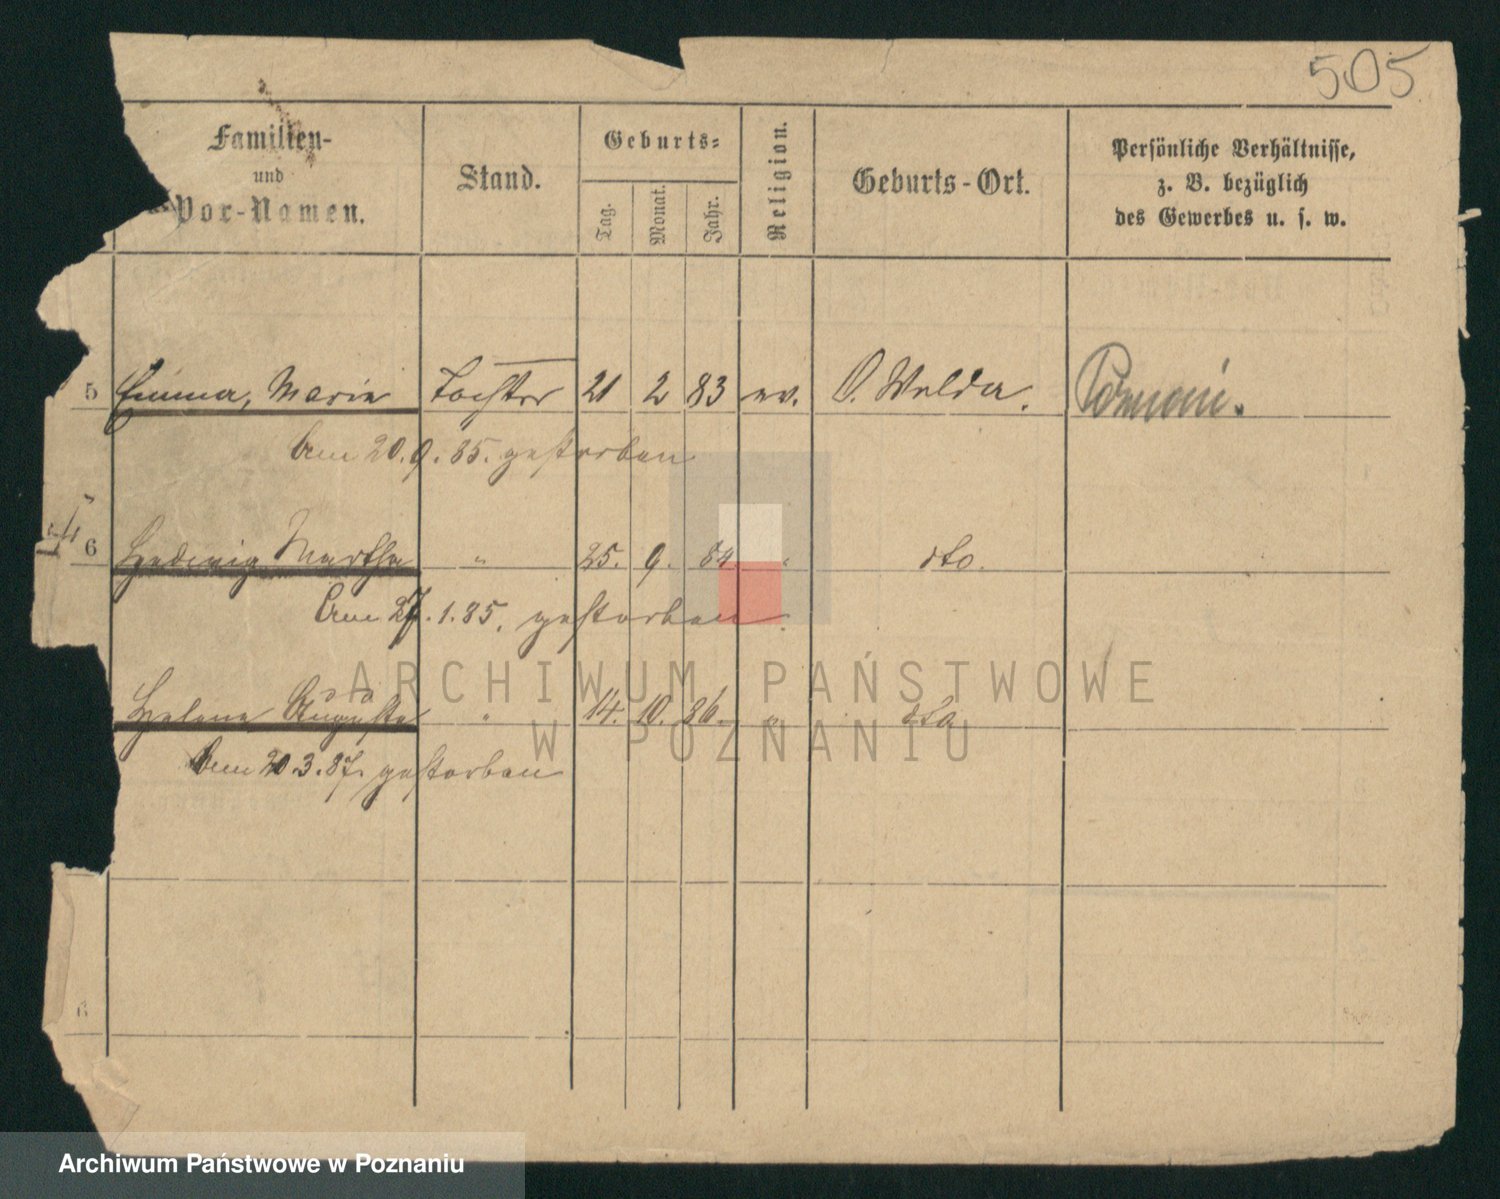 505
Familien-
und
Vor-Namen.
Stand.
Geburts-
Tag.
Monat.
Jahr.
Religion.
Geburts-Ort.
Persönliche Verhältnisse,
z. B. bezüglich
des Gewerbes u. s. w.
5 Emma, Marie Tochter 21 2 83 ev. O. Wilda.
Am 20.9.85. gestorben
6 Hedwig Martha " 25. 9. 84 " dto.
Am 27.1.85. gestorben
Helene Auguste " 14. 10. 86. " dto
Am 20.3.87. gestorben
6
ARCHIWUM PAŃSTWOWE
W POZNANIU
Archiwum Państwowe w Poznaniu